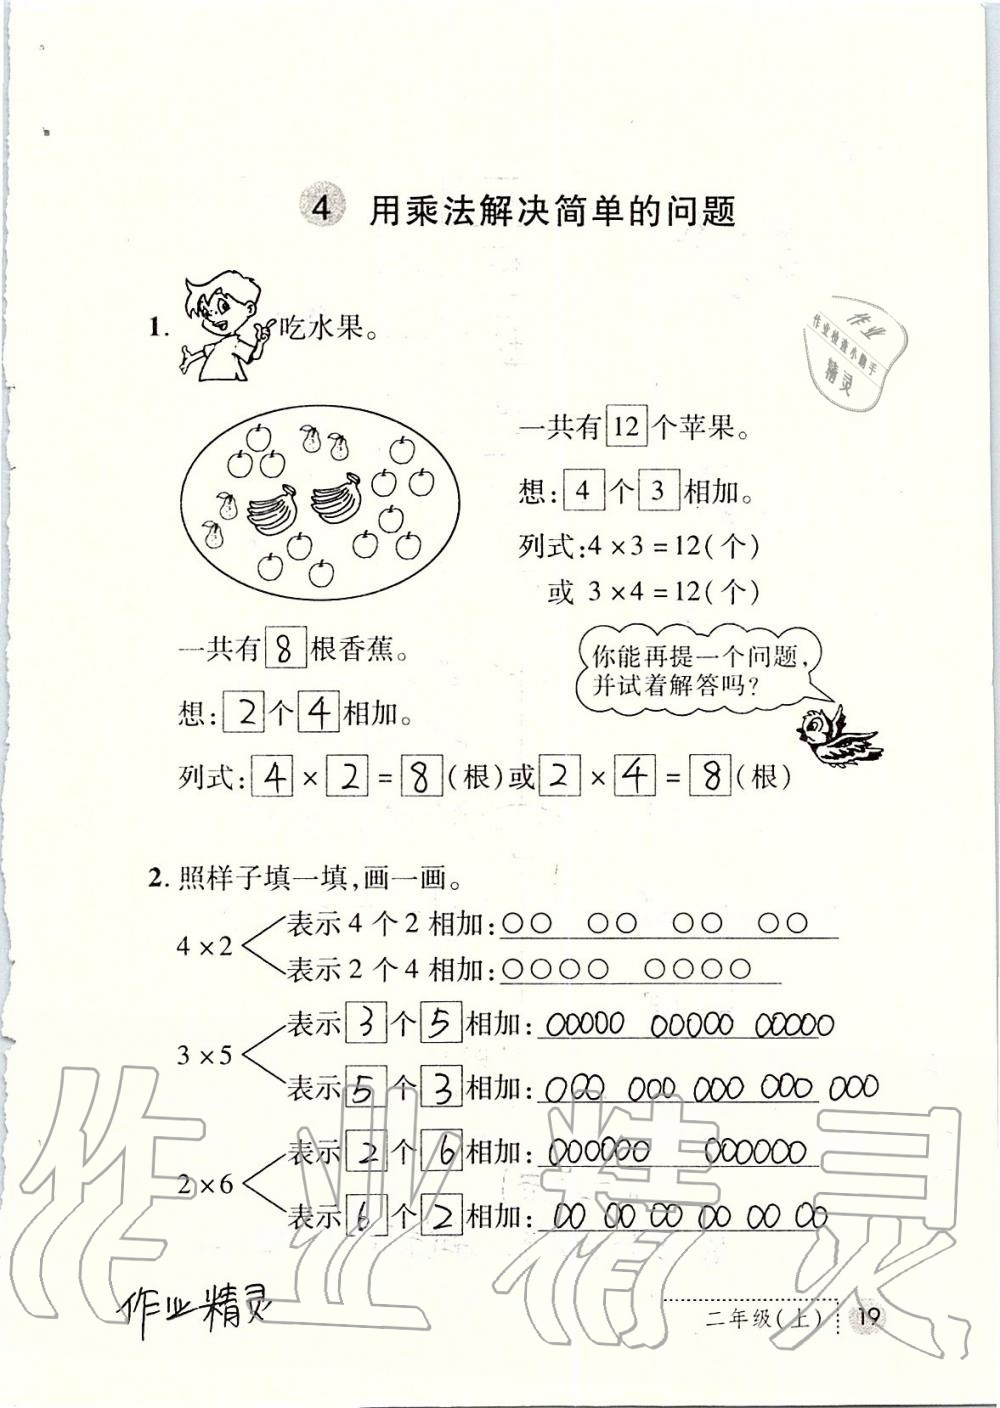 4 用乘法解决简单的问题
作业
作业检查小助手
精灵
1. 吃水果。
一共有12个苹果。
想:4个3相加。
列式:4×3=12(个)
或 3×4=12(个)
一共有8根香蕉。
想:2个4相加。
列式:4×2=8(根)或2×4=8(根)
你能再提一个问题,
并试着解答吗?
2. 照样子填一填,画一画。
4×2
表示4个2相加:○○ ○○ ○○ ○○
表示2个4相加:○○○○ ○○○○
3×5
表示3个5相加:○○○○○ ○○○○○ ○○○○○
表示5个3相加:○○○ ○○○ ○○○ ○○○ ○○○
2×6
表示2个6相加:○○○○○○ ○○○○○○
表示6个2相加:○○ ○○ ○○ ○○ ○○ ○○
作业精灵
作业精灵
二年级(上) 19